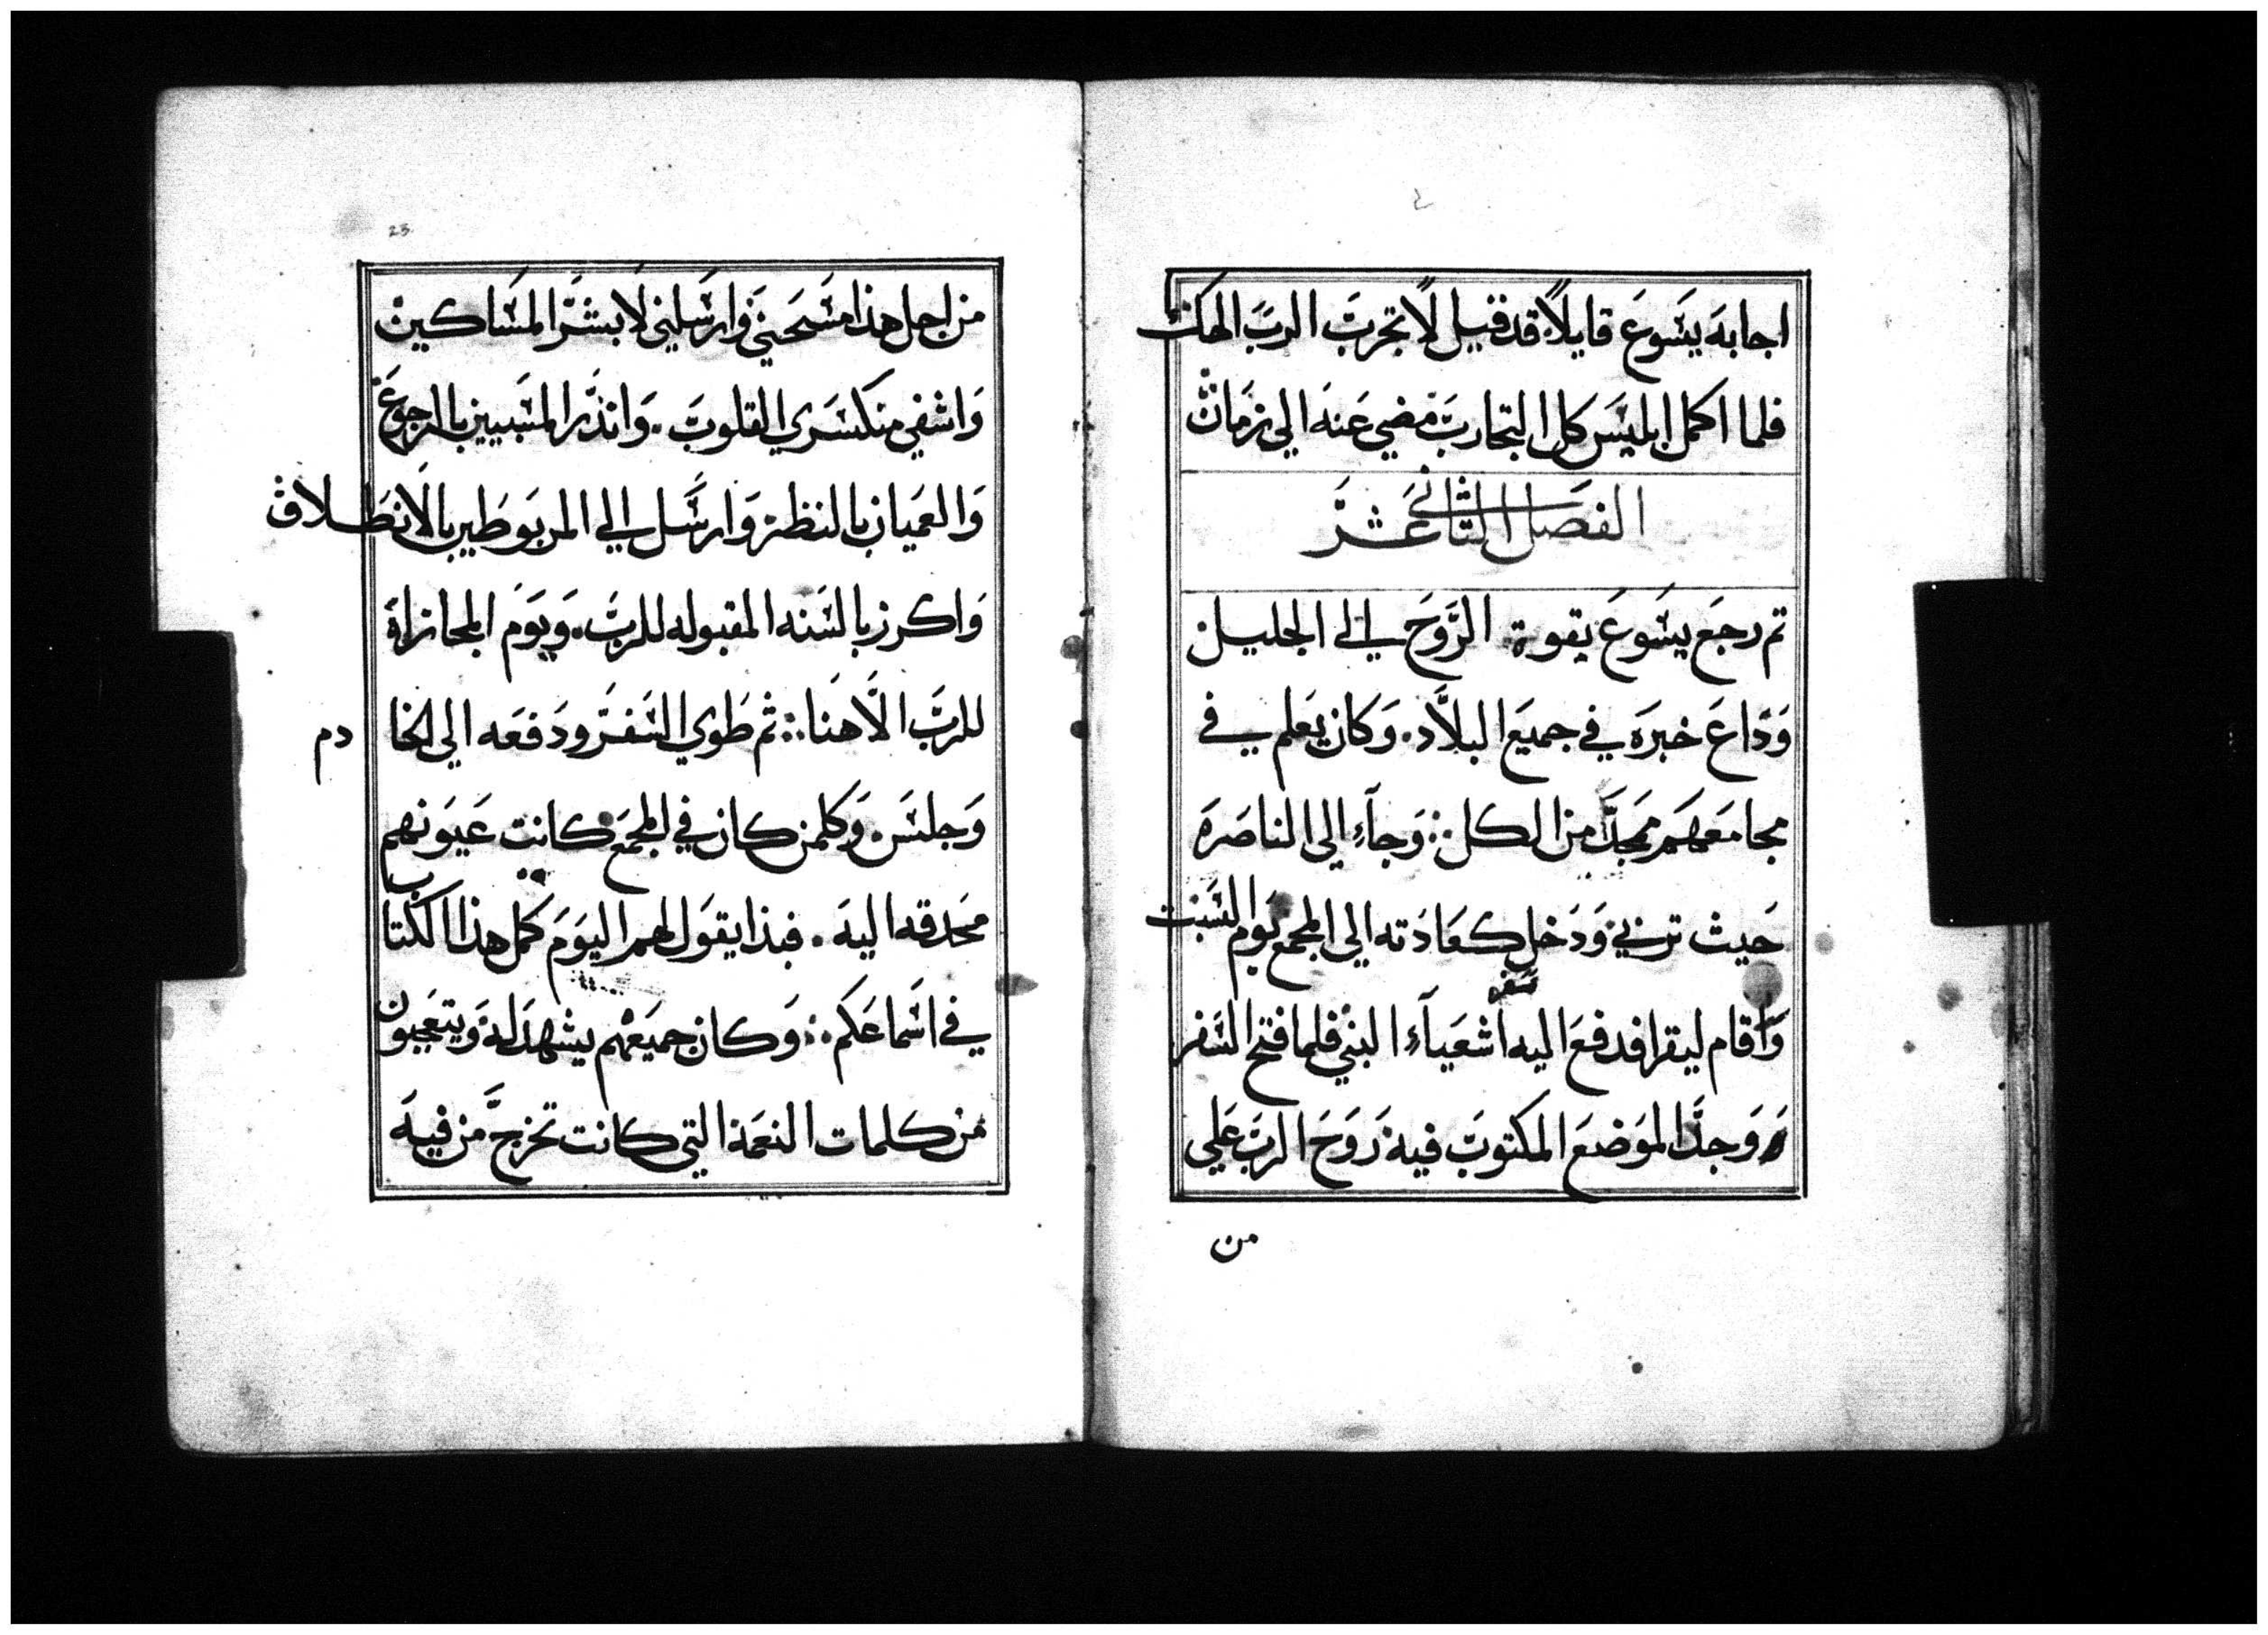 اجابه يسوع قايلا قد قيل لا تجرب الرب الهك
فلما اكمل ابليس كل التجارب مضي عنه الي زمان
الفصل الثاني عشر
تم رجع يسوع بقوة الروح الي الجليل
وذاع خبره في جميع البلاد. وكان يعلم في
مجامعهم ممجدا من الكل ؞ وجاء الي الناصره
حيث تربي ودخل كعادته الي المجمع يوم السبت
واقام ليقرا فدفع اليه سفر اشعياء النبي فلما فتح السفر
ووجد الموضع المكتوب فيه روح الرب علي
من
23
من اجل هذا مسحني وارسلني لابشر المساكين
واشفي منكسري القلوب. وانذر المسبيين بالرجوع
والعميان بالنظر وارسل الي المربوطين بالانطلاق
واكرز بالسنه المقبوله للرب. ويوم المجازاة
للرب الاهنا ؞ ثم طوي السفر ودفعه الي الخادم
وجلس. وكلمن كان في المجمع كانت عيونهم
محدقه اليه. فبذا يقول لهم اليوم كمل هذا الكتاب
في اسماعكم ؞ وكان جميعهم يشهد له ويتعجبون
من كلمات النعمة التي كانت تخرج من فيه